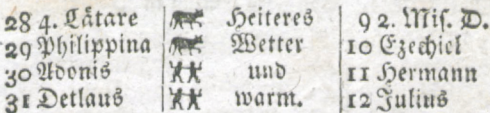 28 4. Lätare Heiteres 9 2. Mis. D.
29 Philippina Wetter 10 Ezechiel
30 Adonis und 11 Hermann
31 Detlaus warm. 12 Julius